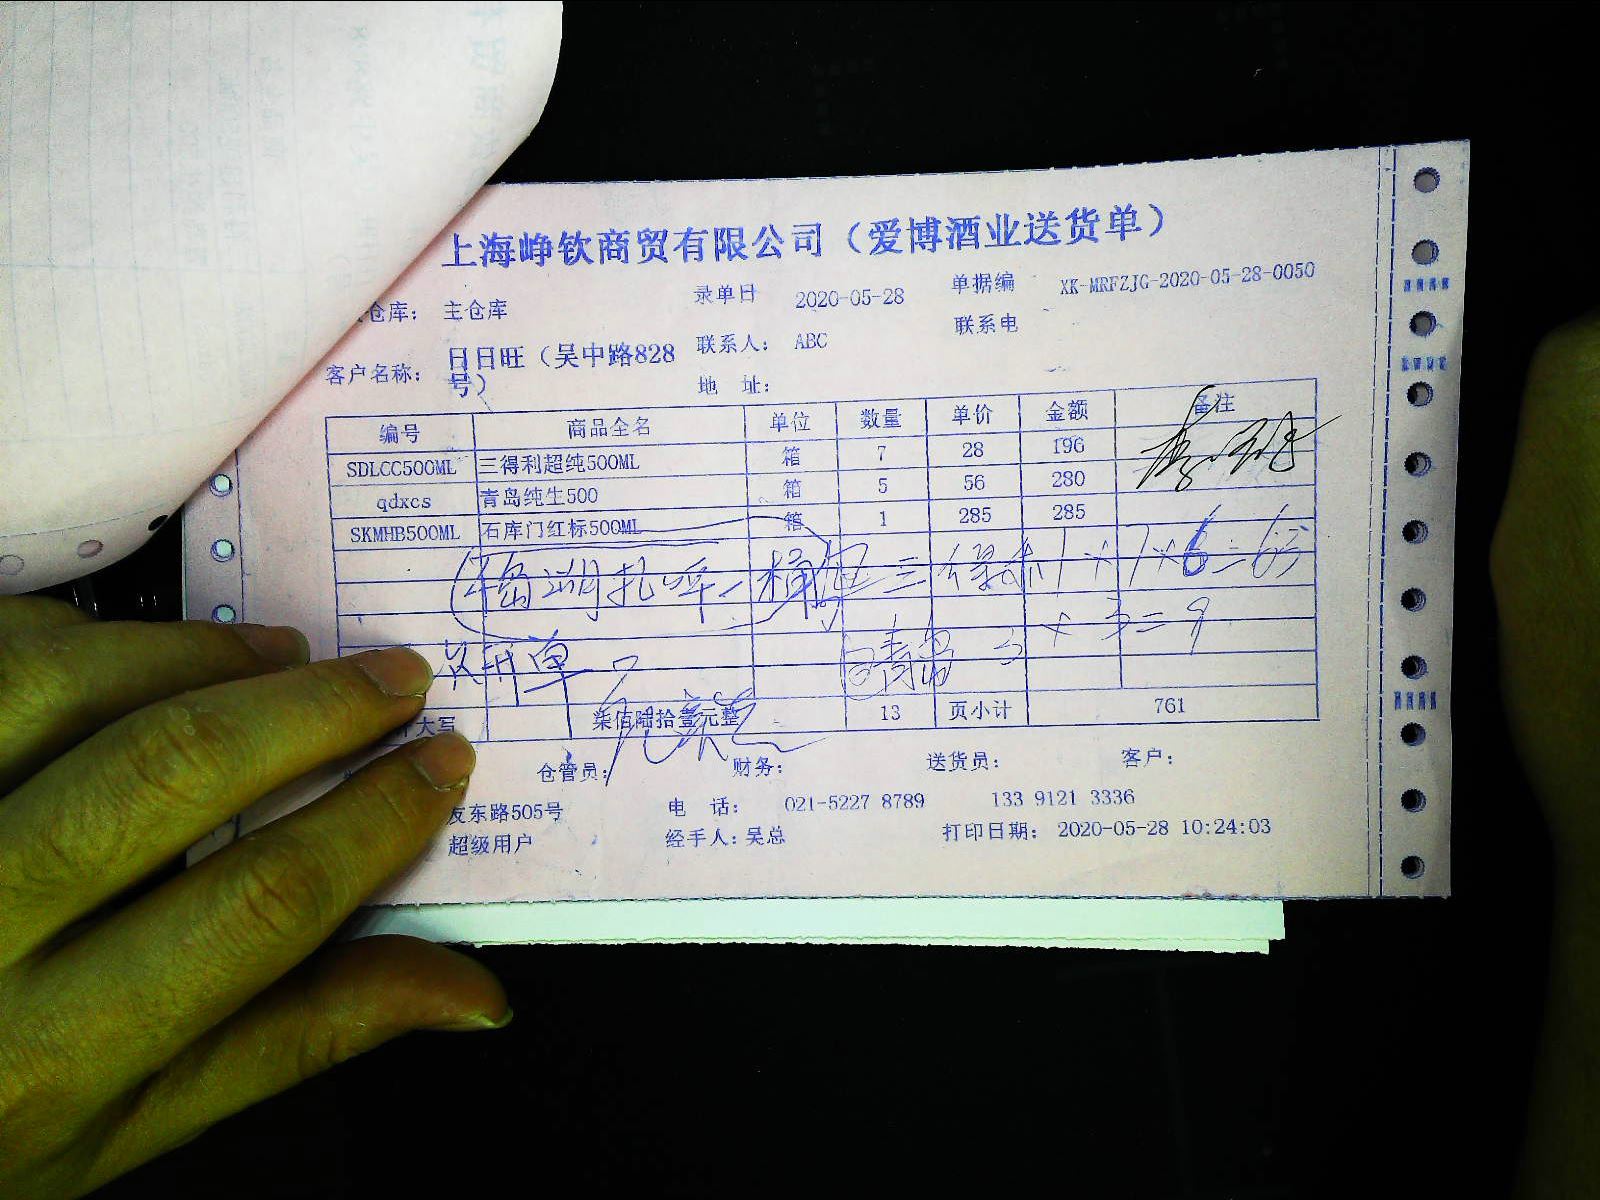 上海峥钦商贸有限公司（爱博酒业送货单）
仓库： 主仓库 录单日 2020-05-28 单据编 XK-MRFZJG-2020-05-28-0050
客户名称： 日日旺（吴中路828号） 联系人： ABC 联系电
地 址：
编号 商品全名 单位 数量 单价 金额 备注
SDLCC500ML 三得利超纯500ML 箱 7 28 196
qdxcs 青岛纯生500 箱 5 56 280
SKMHB500ML 石库门红标500ML 箱 1 285 285
扎啤一桶
青岛 3 × 3 = 9
开单
大写 柒佰陆拾壹元整 13 页小计 761
仓管员： 财务： 送货员： 客户：
友东路505号 电 话： 021-5227 8789 133 9121 3336
超级用户 经手人：吴总 打印日期： 2020-05-28 10:24:03